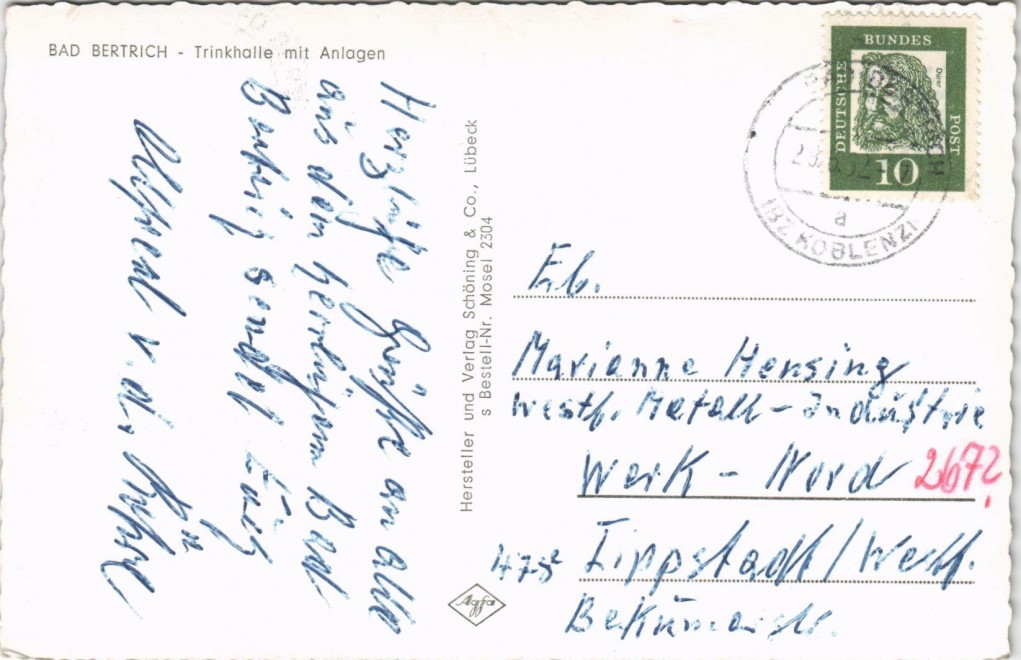 BAD BERTRICH - Trinkhalle mit Anlagen
Herzliche Grüße an alle
aus dem herrlichen Bad
Bertrich sendet Euch
v. d.
Hersteller und Verlag Schöning & Co., Lübeck
s Bestell-Nr. Mosel 2304
Agfa
DEUTSCHE
BUNDES
POST
Dürer
10
a
(BZ KOBLENZ)
Frl.
Marianne Hensing
Westf. Metall-Industrie
Werk-Nord 2672
Lippstadt/Westf.